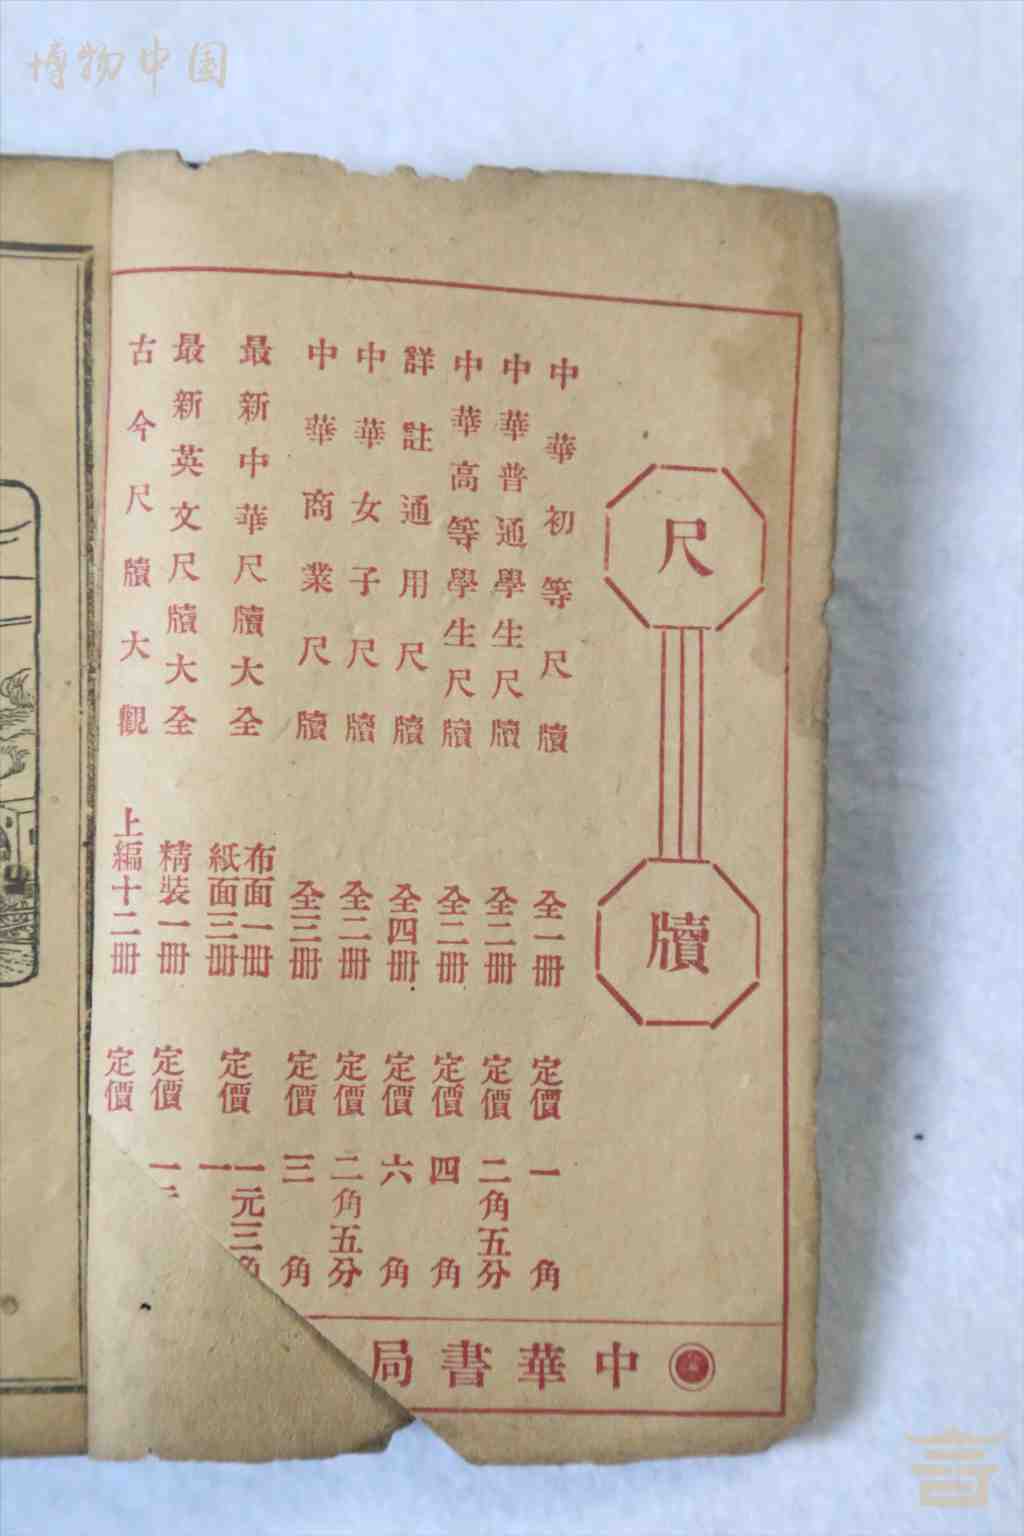 博物中国
尺牘
中華初等尺牘 全一册 定價 一角
中華普通學生尺牘 全二册 定價 二角五分
中華高等學生尺牘 全二册 定價 四角
詳註通用尺牘 全四册 定價 六角
中華女子尺牘 全二册 定價 二角五分
中華商業尺牘 全三册 定價 三角
最新中華尺牘大全 布面一册 紙面三册 定價 一元三角 一
最新英文尺牘大全 精裝一册 定價 一
古今尺牘大觀 上編十二册 定價
中華書局